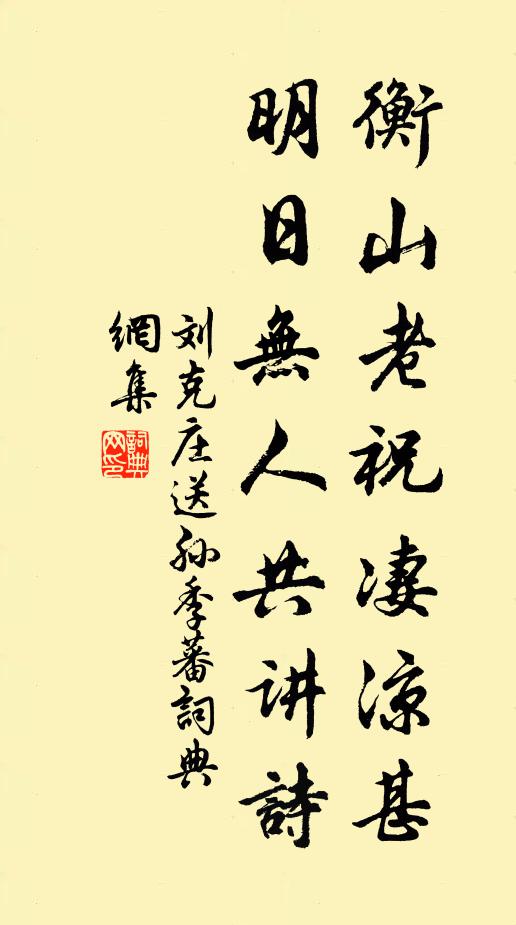 衡山老祝凄涼甚
明日無人共讲詩
刘克庄送孙季蕃詞典
網集
詞典
网印